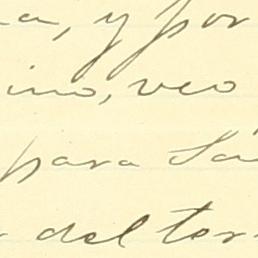 a, y por
ino, veo
para Sa
del ter